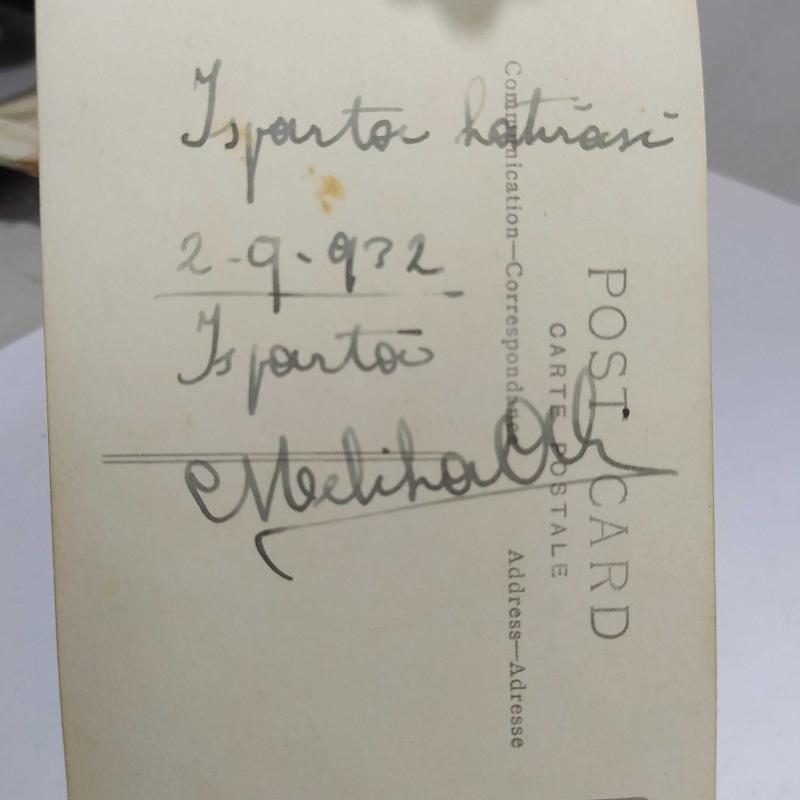 Isparta hatırası
2-9-932
Isparta
Meliha
POST CARD
CARTE POSTALE
Communication—Correspondance
Address—Adresse